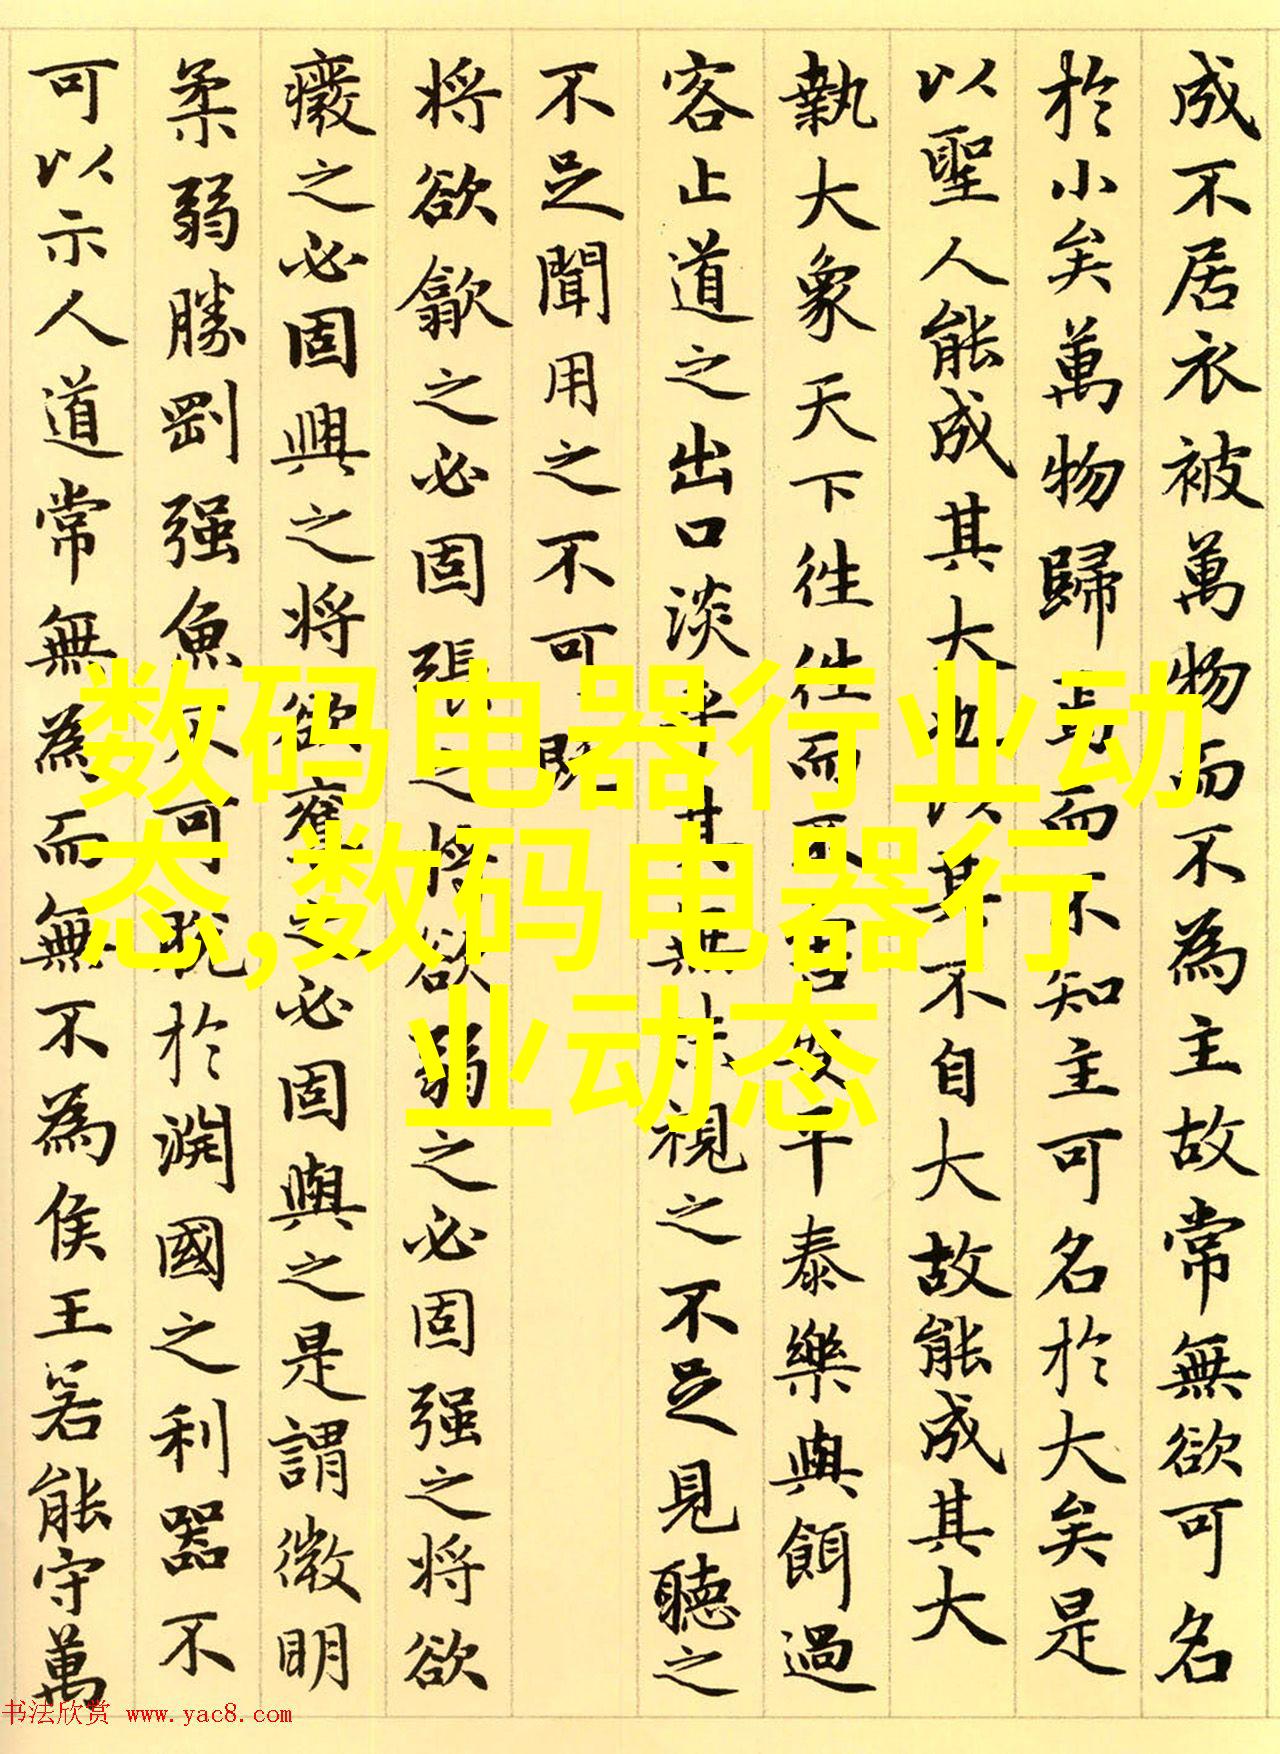 成不居衣被萬物而不為主故常無欲可名
於小矣萬物歸焉而不知主可名於大矣是
以聖人能成其大也以其不自大故能成其大
執大象天下往往而不害安平泰樂與餌過
客止道之出口淡乎其無味視之不足見聽之
不足聞用之不可既
將欲歙之必固張之將欲弱之必固强之將欲
廢之必固興之將欲奪之必固與之是謂微明
柔弱勝剛强魚不可脫於淵國之利器不
可以示人道常無為而無不為侯王若能守萬
数码电器行业动
态,数码电器行
业动态
书法欣赏 www.yac8.com